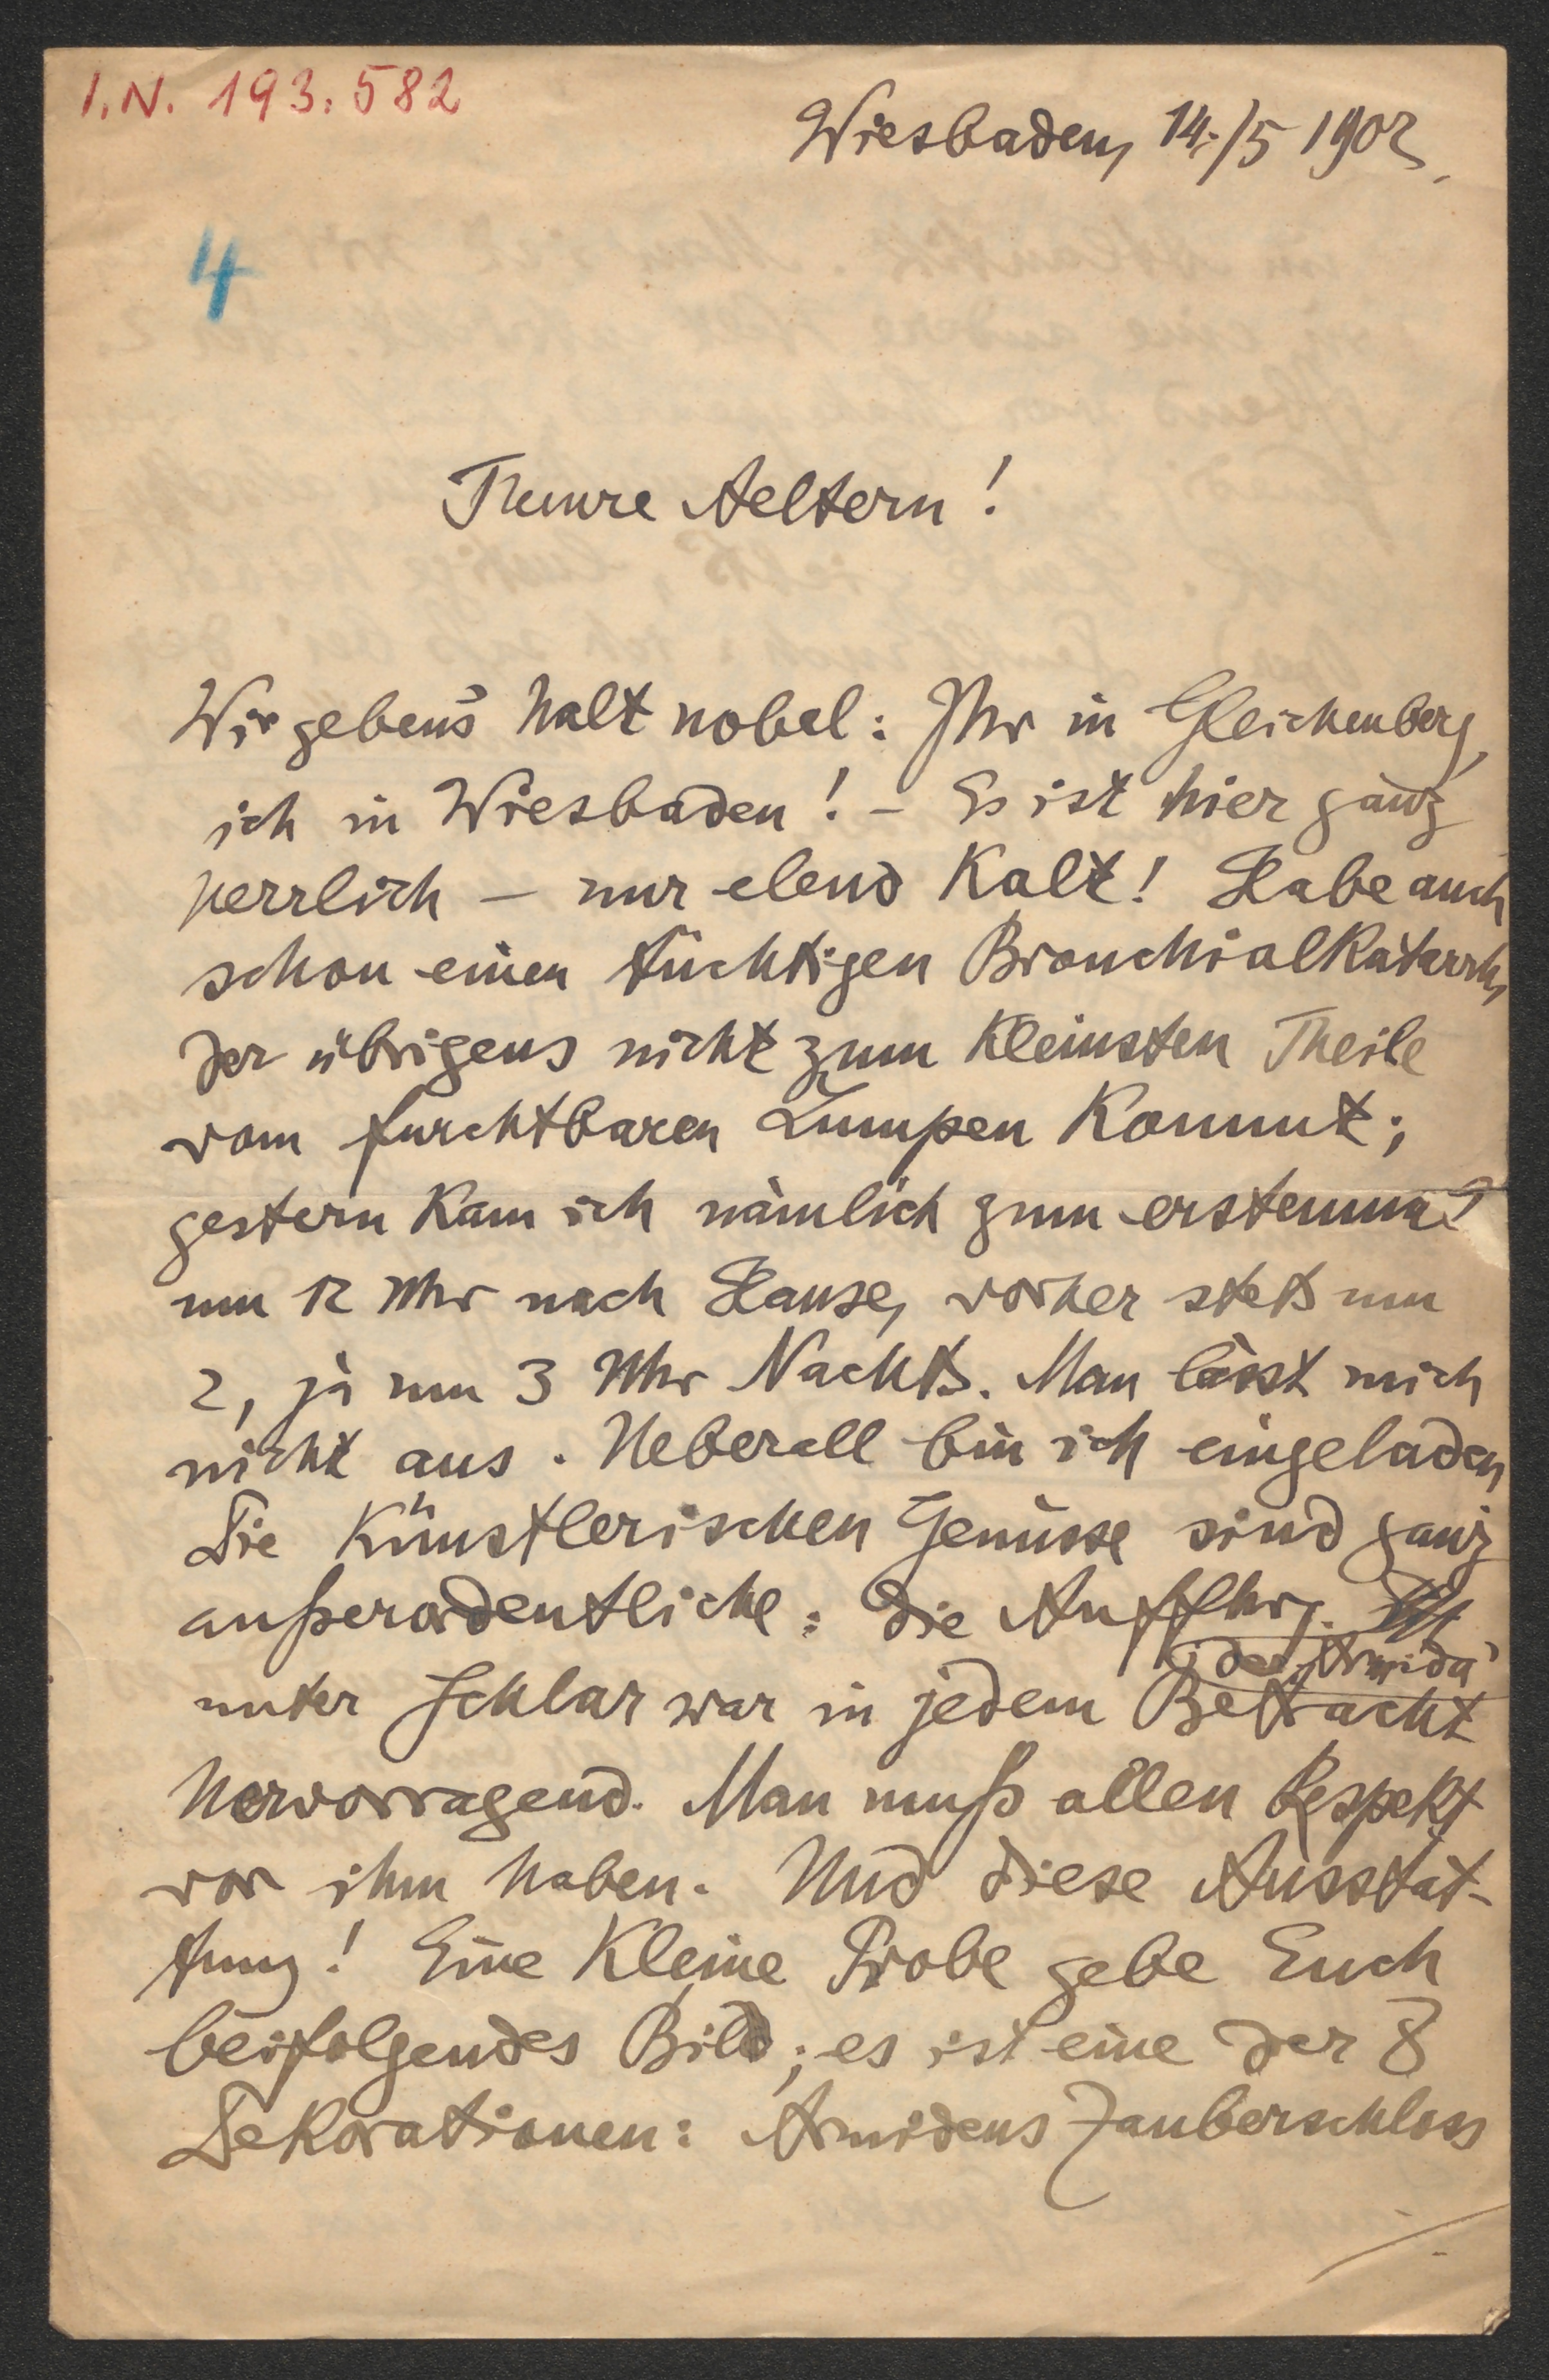 I.N. 193.582
Wiesbaden, 14./5 1902.
4
Theure Aeltern!
Wir geben's halt nobel: Ihr in Gleichenberg,
ich in Wiesbaden! – Es ist hier ganz
herrlich – nur elend kalt! Habe auch
schon einen tüchtigen Bronchialkatarrh,
der übrigens nicht zum kleinsten Theile
vom furchtbaren Lumpen kommt;
gestern kam ich nämlich zum erstenmal
um 12 Uhr nach Hause, vorher stets um
2, ja um 3 Uhr Nachts. Man lässt mich
nicht aus. Ueberall bin ich eingeladen
Die künstlerischen Genüsse sind ganz
außerordentliche: Die Auffhrg.
der „Armida“
unter Schlar war in jedem Betracht
hervorragend. Man muß allen Respekt
vor ihm haben. Und diese Ausstat-
tung! Eine kleine Probe gebe Euch
beifolgendes Bild; es ist eine der 8
Dekorationen: Armidens Zauberschloss